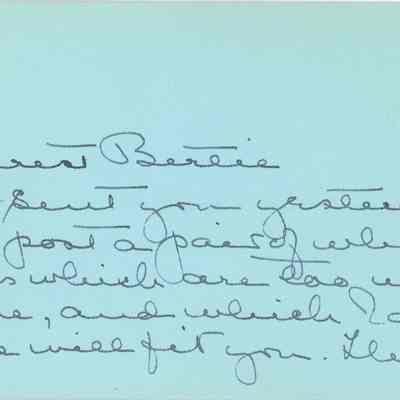 rest Bertie
Sent you yester
post a pair of whi
s which are too w
e, and which I
e will fit you. The